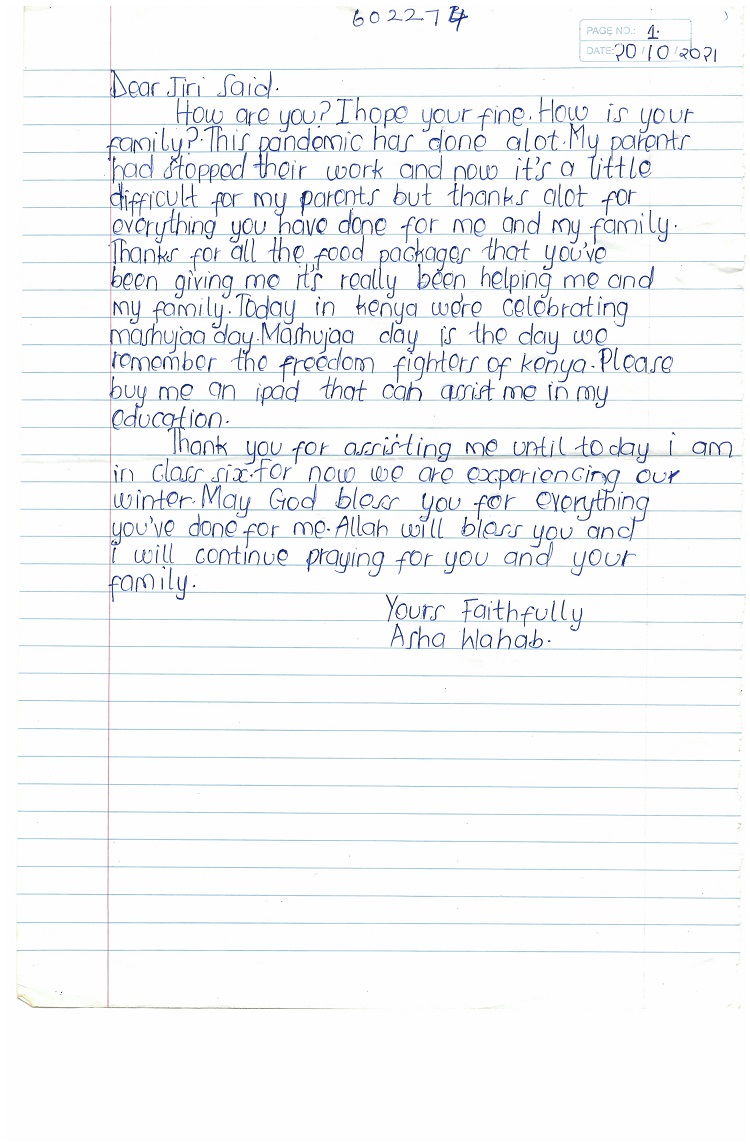 602274
PAGE NO.: 1.
DATE: 20/10/2021
Dear Jiri Said.
How are you? I hope your fine. How is your
family?. This pandemic has done alot. My parents
had stopped their work and now it's a little
difficult for my parents but thanks alot for
everything you have done for me and my family.
Thanks for all the food packages that you've
been giving me it's really been helping me and
my family. Today in kenya we're celebrating
mashujaa day. Mashujaa day is the day we
remember the freedom fighters of kenya. Please
buy me an ipad that can assist me in my
education.
Thank you for assisting me until today i am
in class six. for now we are experiencing our
winter. May God bless you for everything
you've done for me. Allah will bless you and
i will continue praying for you and your
family.
Yours Faithfully
Asha Wahab.